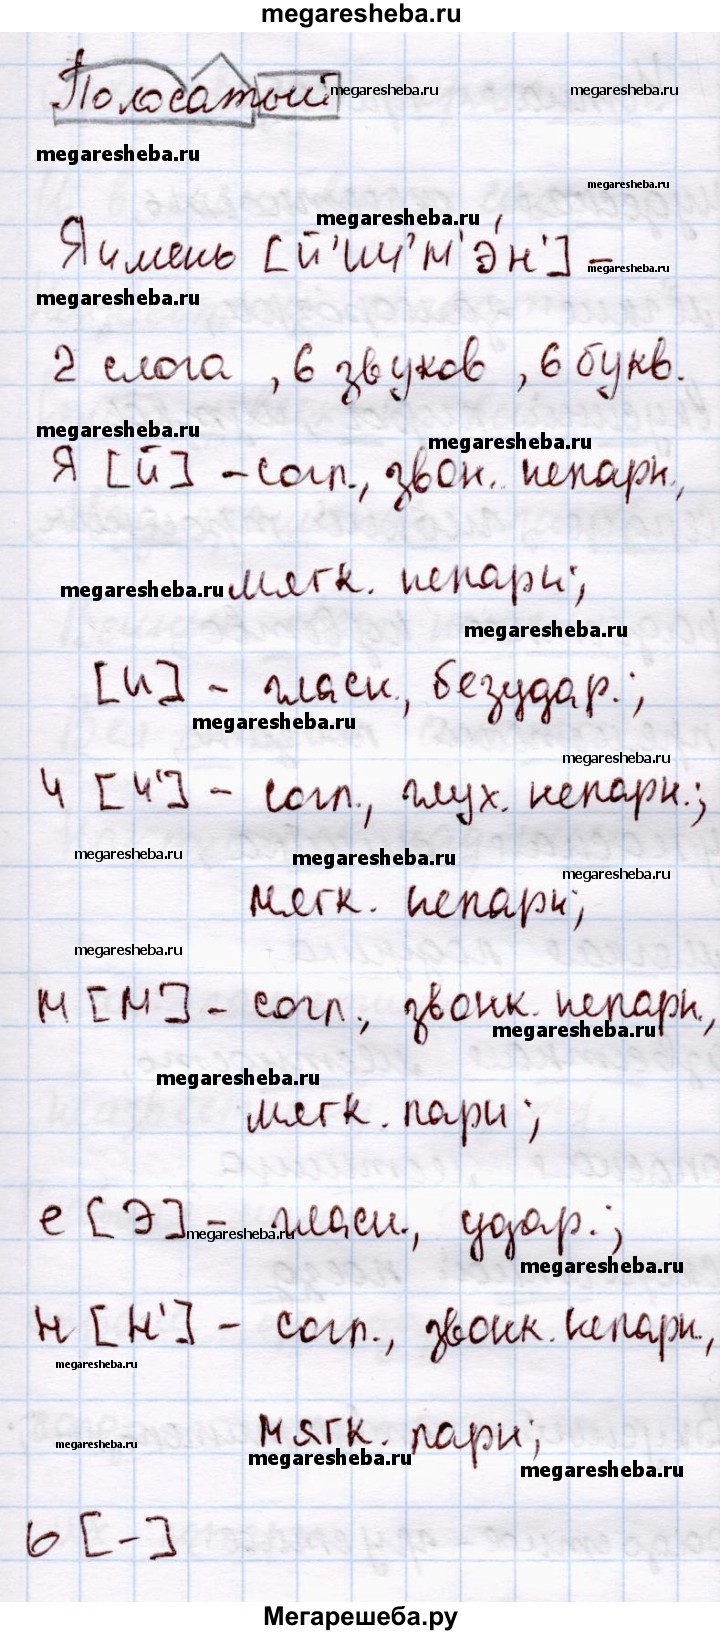 megaresheba.ru
Полосатый megaresheba.ru megaresheba.ru
megaresheba.ru
megaresheba.ru
megaresheba.ru
Ячмень [й'ич'м'э́н'] – megaresheba.ru
megaresheba.ru
2 слога , 6 звуков , 6 букв.
megaresheba.ru
megaresheba.ru
Я [й] – согл., звон. непарн.,
megaresheba.ru мягк. непарн;
megaresheba.ru
[и] – гласн., безудар.;
megaresheba.ru
megaresheba.ru
ч [ч'] – согл., глух. непарн.;
megaresheba.ru megaresheba.ru
megaresheba.ru
мягк. непарн;
megaresheba.ru
м [м'] – согл., звонк. непарн.,
megaresheba.ru
megaresheba.ru
мягк. парн;
е [э] – гласн., удар.;
megaresheba.ru
megaresheba.ru
н [н'] – согл., звонк. непарн.,
megaresheba.ru
мягк. парн;
megaresheba.ru
megaresheba.ru
megaresheba.ru
ь [-]
Мегарешеба.ру